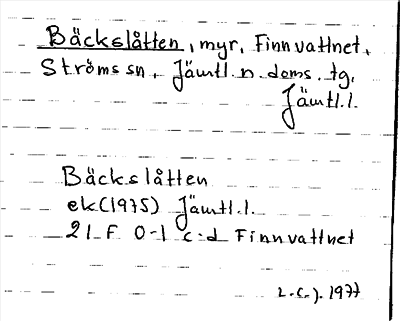 Bäckslåtten, myr, Finnvattnet,
Ströms sn, Jämtl. n. doms. tg,
Jämtl. l.
Bäckslåtten
ek (1975) Jämtl. l.
21 F 0-1 c-d Finnvattnet
L.C.J. 1977